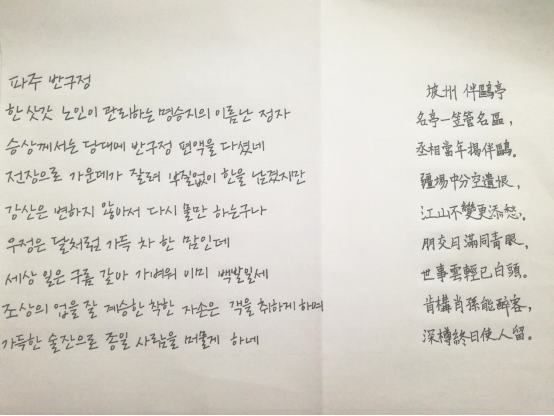 파주 반구정
한 삿갓 노인이 관리하는 명승지의 이름난 정자
승상께서는 당대에 반구정 편액을 다셨네
전장으로 가운데가 잘려 부질없이 한을 남겼지만
강산은 변하지 않아서 다시 볼만 하는구나
우정은 달처럼 가득 차 한 맘인데
세상 일은 구름 같아 가벼워 이미 백발일세
조상의 업을 잘 계승한 착한 자손은 객을 취하게 하며
가득한 술잔으로 종일 사람을 머물게 하네
坡州 伴鷗亭
名亭一笠管名區，
丞相當年揭伴鷗。
疆場中分空遺恨，
江山不變更添愁。
朋交月滿同青眼，
世事雲輕已白頭。
肯構肖孫能醉客，
深樽終日使人留。